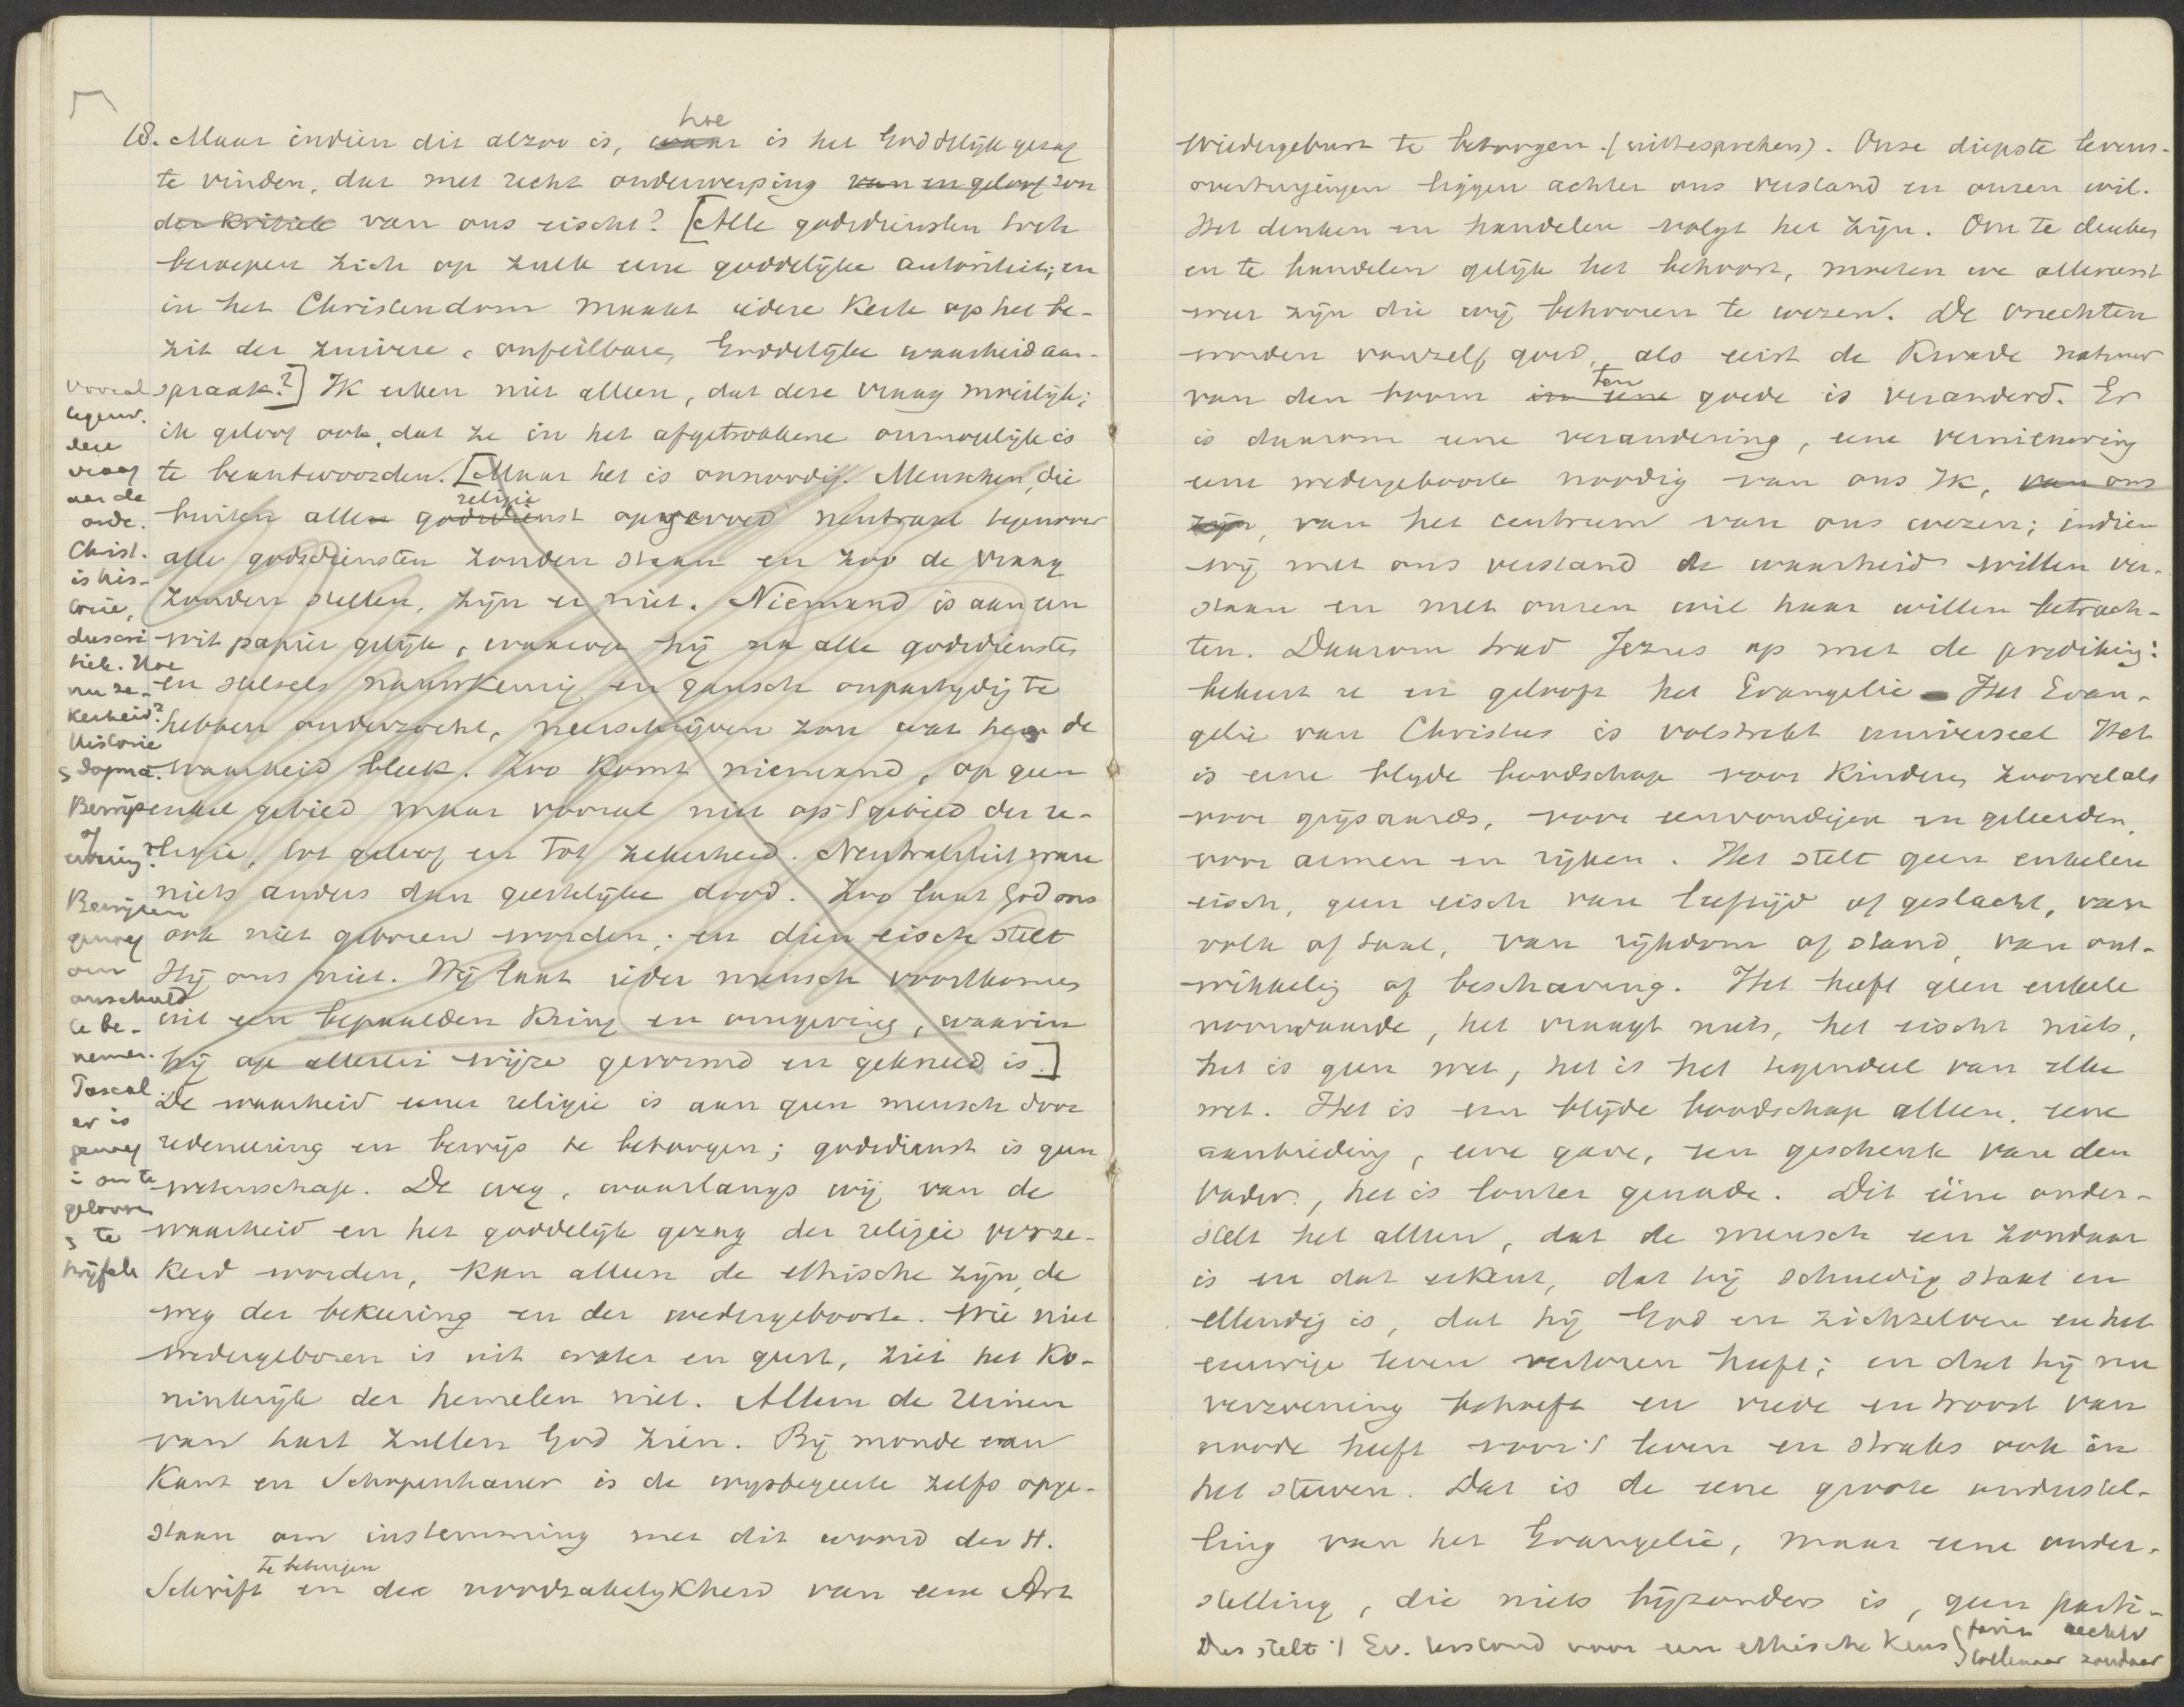 hoe
18. Maar indien dit alzoo is, waar is het Goddelijk gezag
te vinden, dat met recht onderwerping van en geloof zon
der kritiek van ons eischt? [Alle godsdiensten toch
beroepen zich op zulk eene goddelijke autoriteit; en
in het Christendom maakt iedere Kerk op het be-
zit der zuivere, onfeilbare, Goddelijke waarheid aan-
spraak?] Ik erken niet alleen, dat deze vraag moeilijk;
ik geloof ook, dat ze in het afgetrokkene onmogelijk is
te beantwoorden. [Maar het is onnoodig. Menschen, die
religie
buiten allen godsdienst opgevoed neutraal tegenover
alle godsdiensten zouden staan en zoo de vraag
zouden stellen, zijn er niet. Niemand is aan een
wit papier gelijk, waarop hij na alle godsdiensten
en stelsels nauwkeurig en gansch onpartijdig te
hebben onderzocht, neerschrijven zou wat hem de
waarheid bleek. Zoo komt niemand, op geen
enkel gebied maar vooral niet op 't gebied der re-
ligie, tot geloof en tot zekerheid. Neutraliteit ware
niets anders dan geestelijke dood. Zoo laat God ons
ook niet geboren worden; en dien eisch stelt
Hij ons niet. Hij laat ieder mensch voortkomen
uit een bepaalden kring en omgeving, waarin
hij op allerlei wijze gevormd en gekneed is.]
De waarheid eener religie is aan geen mensch door
redeneering en bewijs te betoogen; godsdienst is geen
wetenschap. De weg, waarlangs wij van de
waarheid en het goddelijk gezag der religie verze-
kerd worden, kan alleen de ethische zijn, de
weg der bekeering en der wedergeboorte. Wie niet
wedergeboren is uit water en geest, ziet het Ko-
ninkrijk der hemelen niet. Alleen de reinen
van hart zullen God zien. Bij monde van
Kant en Schopenhauer is de wijsbegeerte zelfs opge-
staan om instemming met dit woord der H.
te betuigen
Schrift en de noodzakelijkheid van eene Art
vooral
tegenw.
deze
vraag
aan de
orde.
Christ.
is his-
torie,
Hoe
nu ze-
kerheid?
Historie
dogma.
Bewijs
of
Bewijzen
genoeg
om
onschuld
te be-
nemen.
Pascal
er is
genoeg
om te
gelooven
te
twijfelen
Wiedergeburt te betoogen. (uittesprechen). Onze diepste levens-
overtuigingen liggen achter ons verstand en onzen wil.
Het denken en handelen volgt het zijn. Om te denken
en te handelen gelijk het behoort, moeten we allereerst
weer zijn die wij behooren te wezen. De vruchten
worden vanzelf goed, als eerst de kwade natuur
ten
van den boom in eene goede is veranderd. Er
is daarom eene verandering, eene vernieuwing
eene wedergeboorte noodig van ons Ik, van ons
zijn, van het centrum van ons wezen; indien
wij met ons verstand de waarheid willen ver-
staan en met onzen wil haar willen betrach-
ten. Daarom trad Jezus op met de prediking:
bekeert u en gelooft het Evangelie. Het Evan-
gelie van Christus is volstrekt universeel Het
is eene blijde boodschap voor kinderen zoowel als
voor grijsaards, voor eenvoudigen en geleerden,
voor armen en rijken. Het stelt geen enkelen
eisch, geen eisch van leeftijd of geslacht, van
volk of taal, van rijkdom of stand, van ont-
wikkeling of beschaving. Het heeft geen enkele
voorwaarde, het vraagt niets, het eischt niets,
het is geen wet, het is het tegendeel van elke
wet. Het is een blijde boodschap alleen, eene
aanbieding, eene gave, een geschenk van den
Vader, het is louter genade. Dit ééne onder-
stelt het alleen, dat de mensch een zondaar
is en dat erkent, dat hij schuldig staat en
ellendig is, dat hij God en zichzelven en het
eeuwige leven verloren heeft; en dat hij nu
verzoening behoeft en vrede en troost van
noode heeft voor 't leven en straks ook in
het sterven. Dat is de eene groote onderstel-
ling van het Evangelie, maar eene onder-
stelling, die niets bijzonders is, geen parti-
Dus stelt 't Ev. voor een ethische keus
tollenaar zondaar